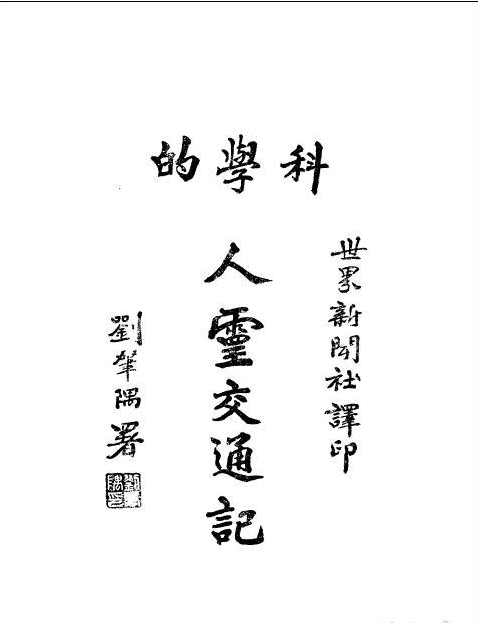 科學的
世界新聞社譯印
人靈交通記
劉肇隅署